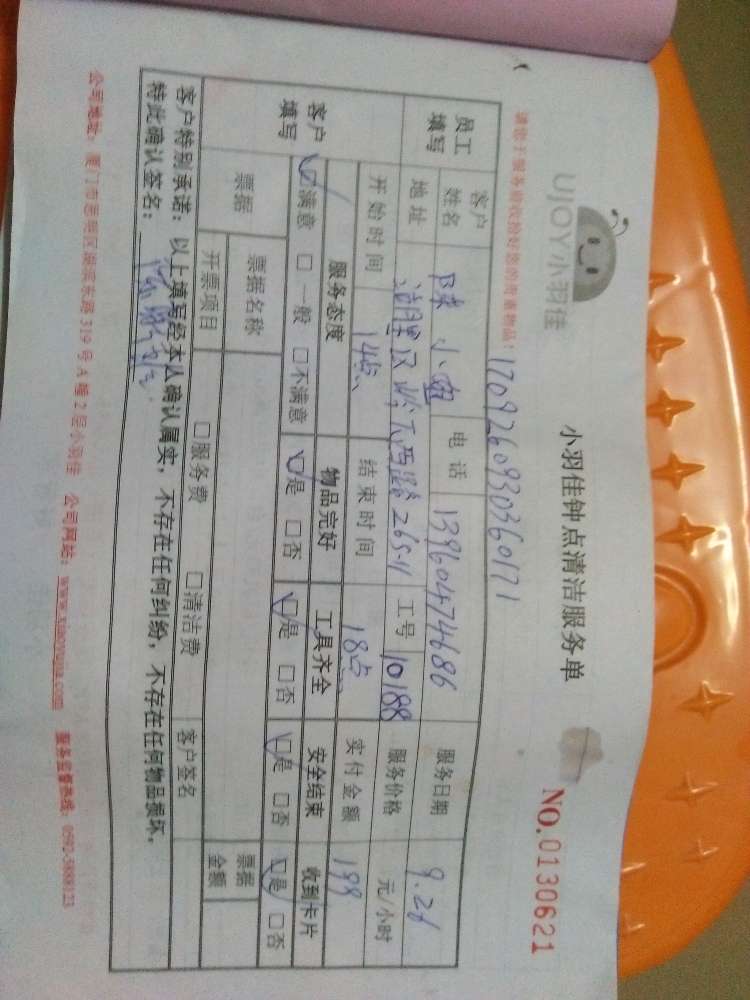 UJOY小羽佳
小羽佳钟点清洁服务单
NO.0130621
请您于服务前收拾好您的贵重物品:
17092609303360171
员工填写 客户姓名 陈小 电话 13960474686 服务日期 9.26
地址 湖里区 西路265-11 工号 10188 服务价格 元/小时
开始时间 14点 结束时间 18点 实付金额 199
客户填写 服务态度 物品完好 工具齐全 安全结束 收到卡片
☑满意 □一般 □不满意 ☑是 □否 ☑是 □否 ☑是 □否 ☑是 □否
票据 票据名称 票据金额
开票项目 □服务费 □清洁费 客户签名
客户特别承诺:以上填写经本人确认属实,不存在任何纠纷,不存在任何物品损坏,
特此确认签名:
公司地址:厦门市思明区湖滨东路319号A幢2层小羽佳 公司网站:www.xiaoyujia.com 服务监督热线:0592-5888123